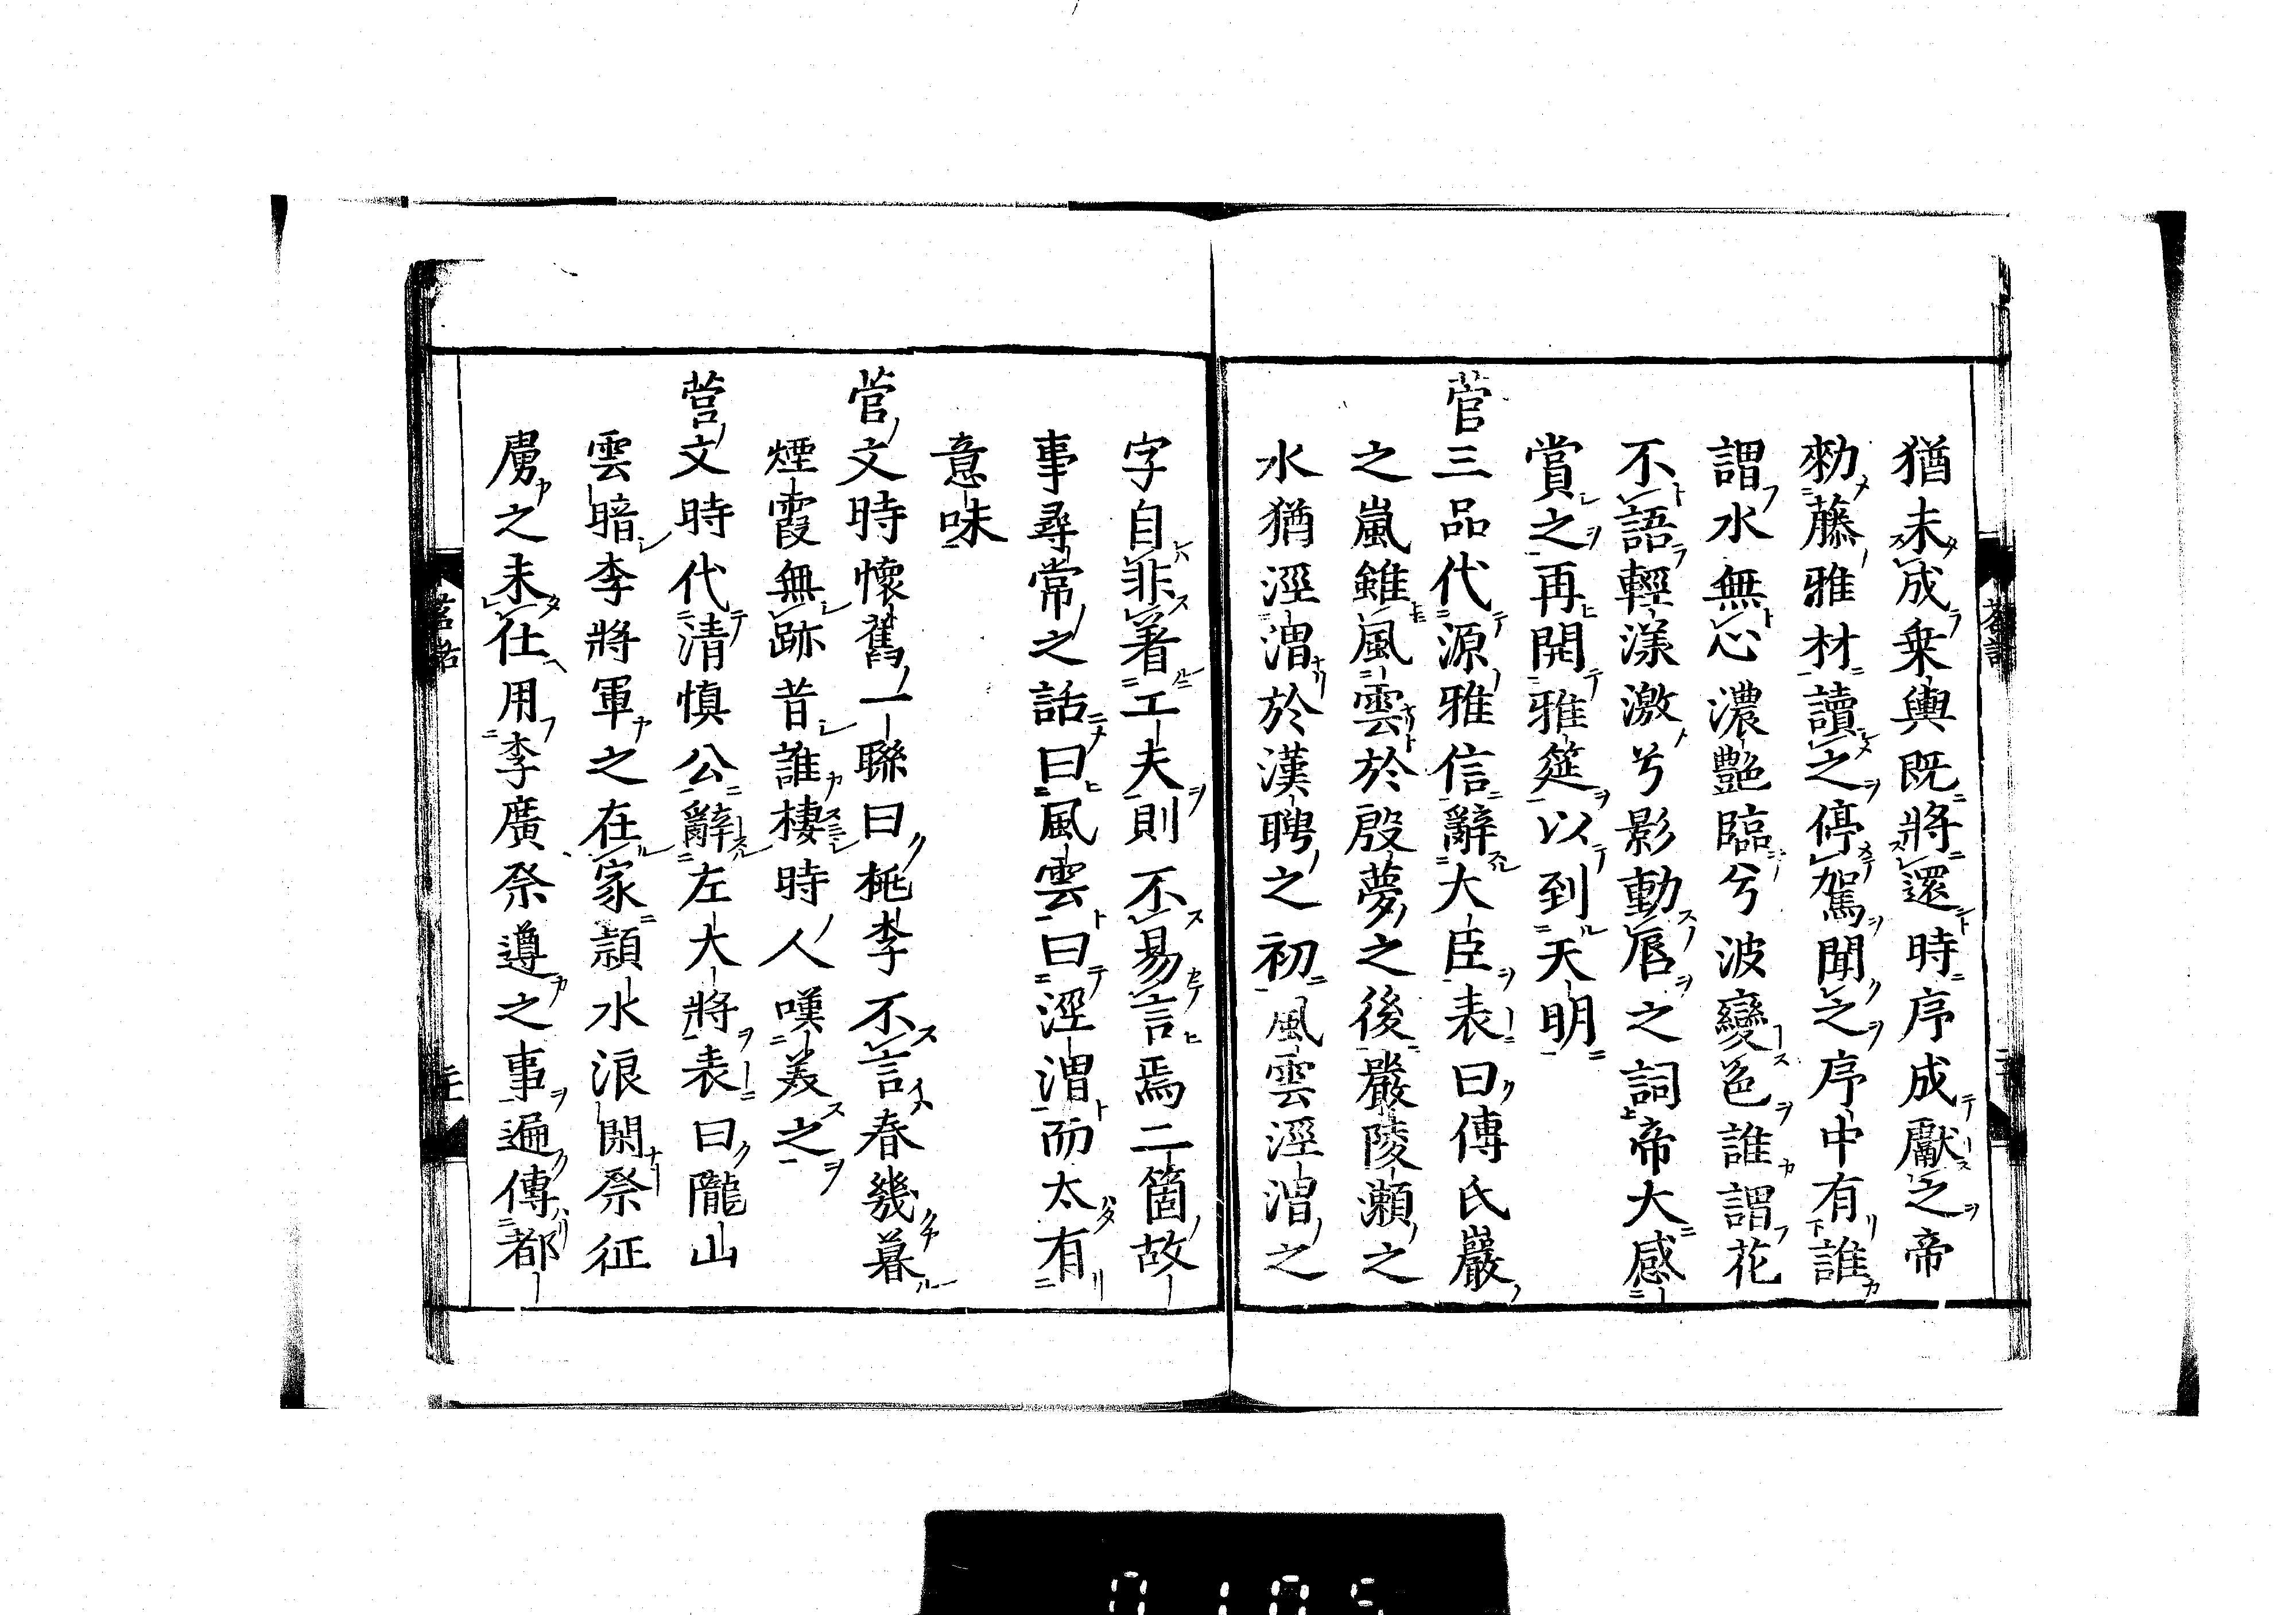 猶未成乗輿既將還時序成獻之帝
勅藤雅材讀之停駕聞之序中有誰
謂水無心濃艶臨兮波變色誰謂花
不語輕漾激兮影動唇之詞帝大感
賞之再開雅筵以到天明
菅三品代源雅信辭大臣表曰傳氏巖
之嵐雖風雲於殷夢之後嚴陵瀬之
水猶涇渭於漢聘之初風雲涇渭之
字自非著工夫則不易言焉二箇故
事尋常之話曰風雲曰涇渭而太有
意味
菅文時懷舊一聯曰桃李不言春幾暮
煙霞無跡昔誰棲時人嘆美之
菅文時代清慎公辭左大將表曰隴山
雲暗李將軍之在家潁水浪閑祭征
虜之未仕用李廣祭遵之事遍傳都